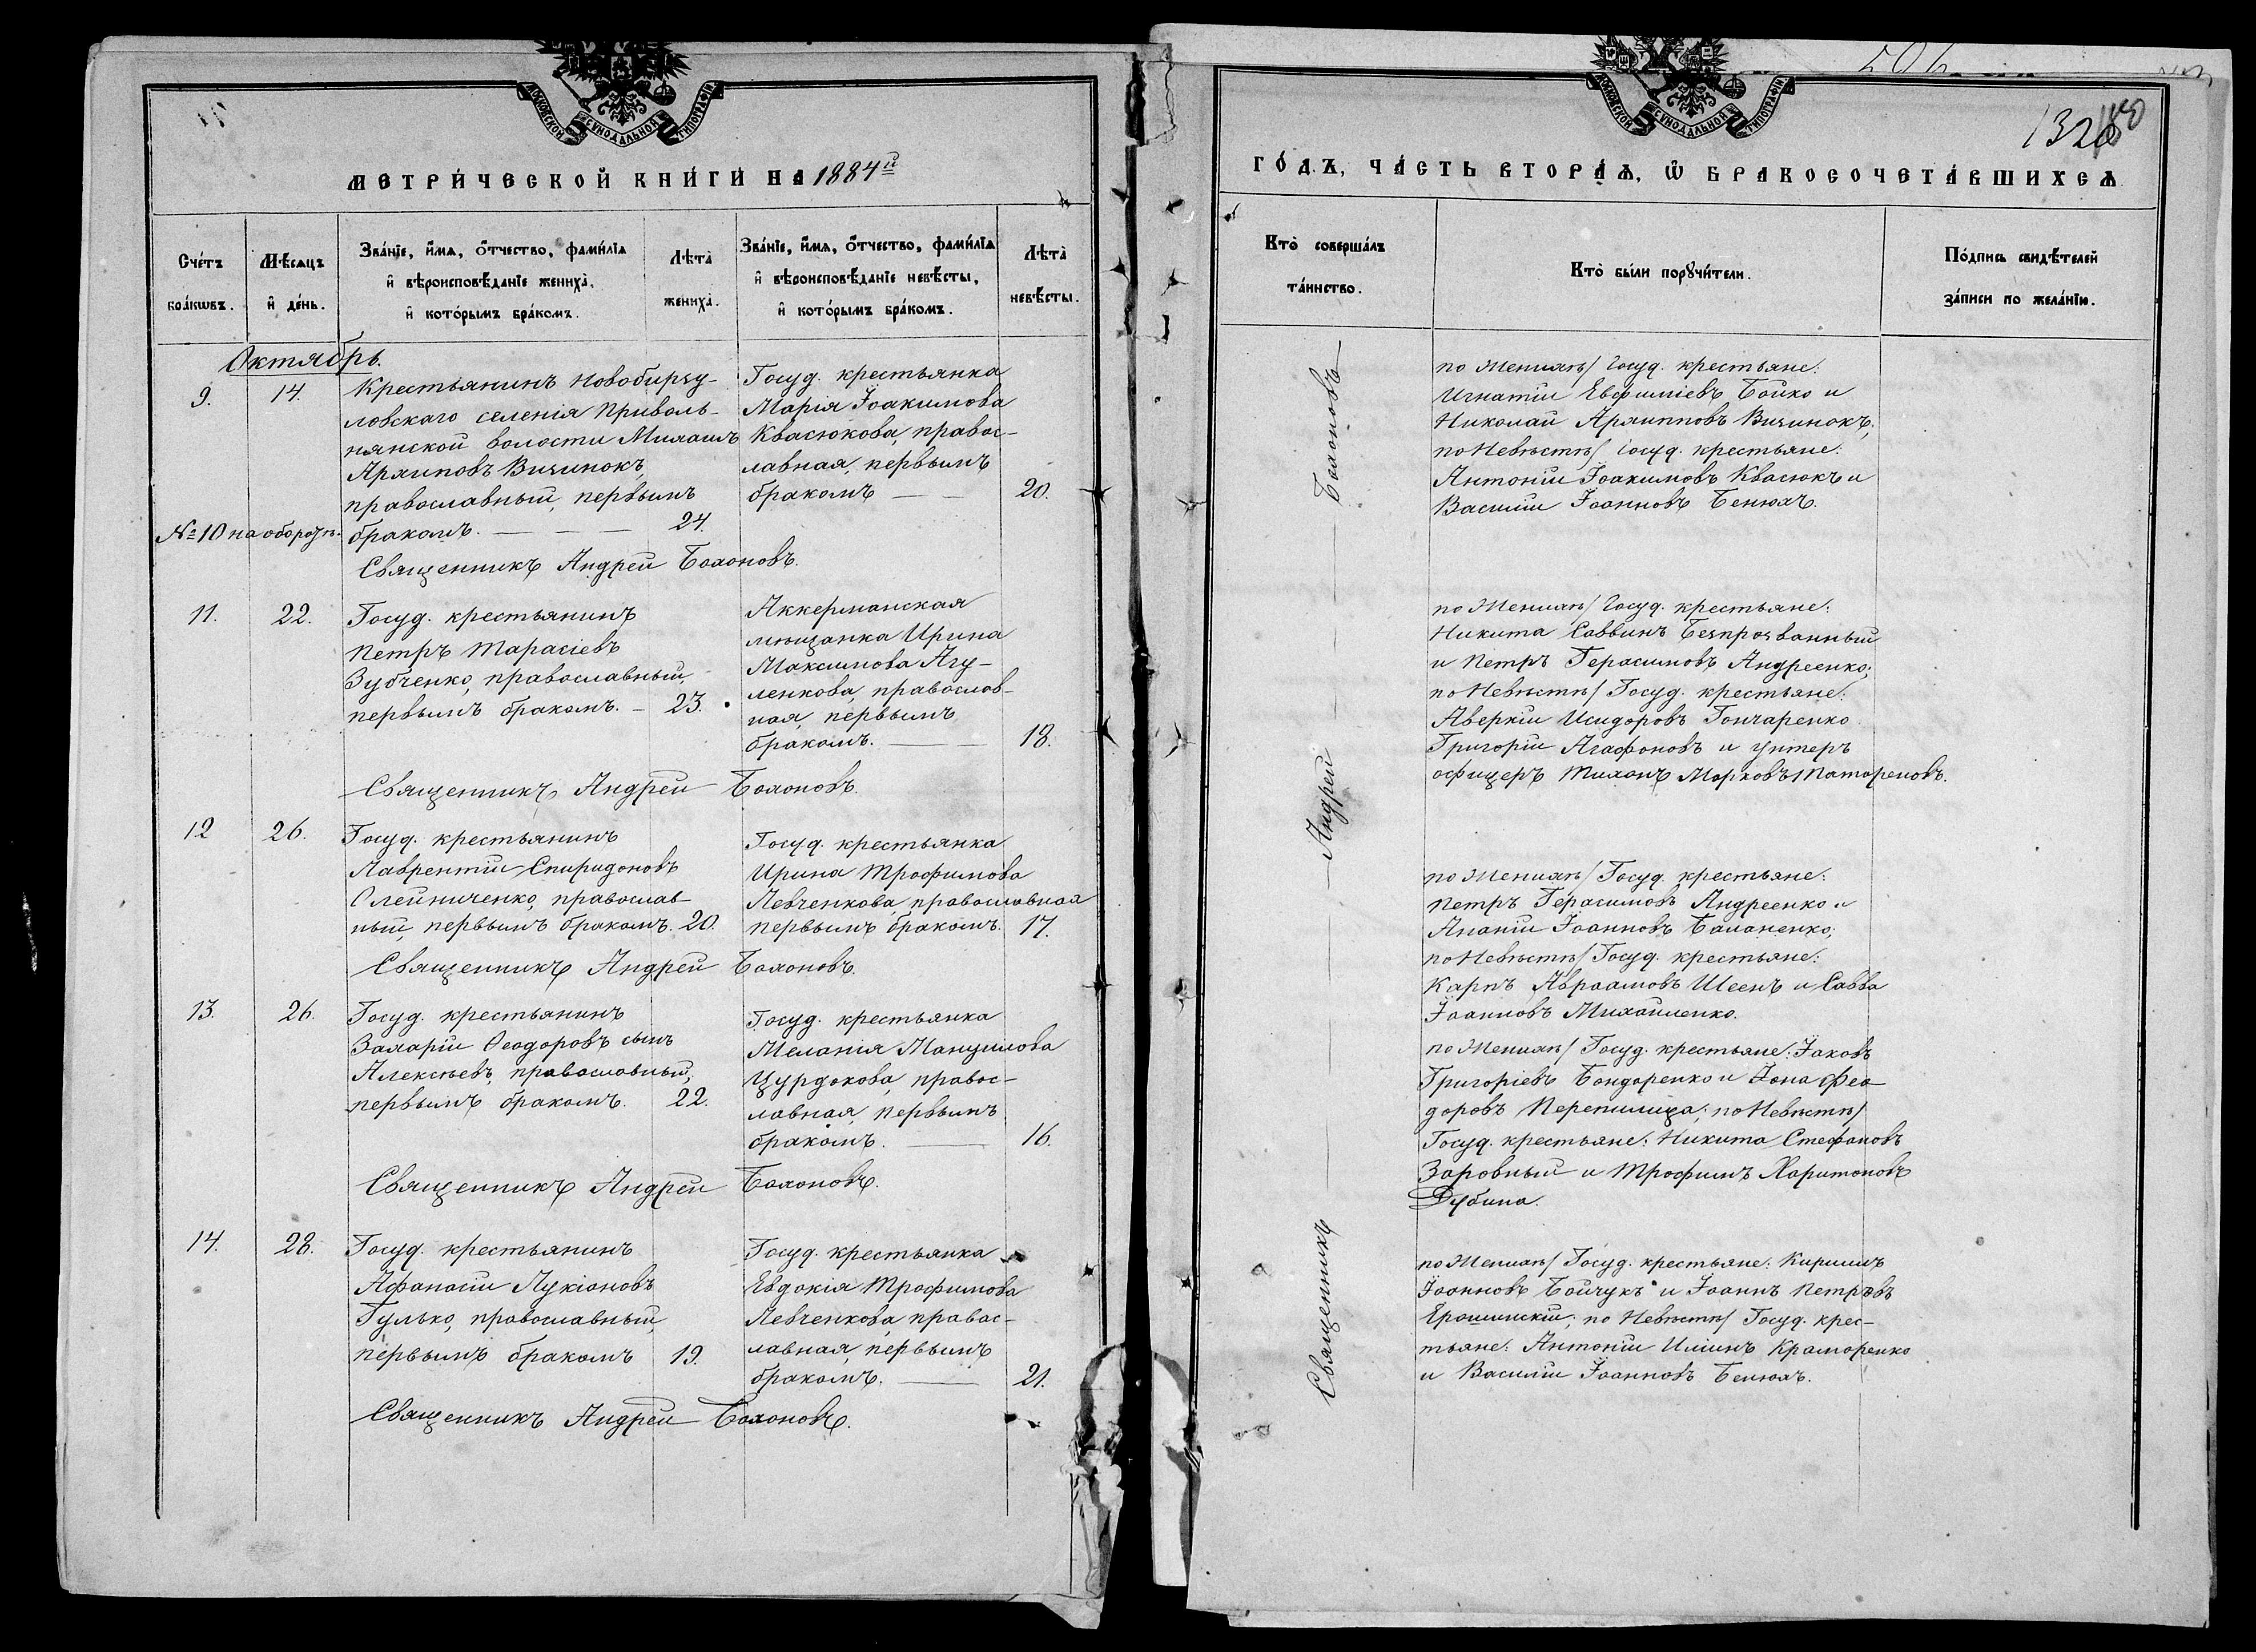 МОСКОВСКОЙ СѴНОДАЛЬНОЙ ТИПОГРАФІИ.
МЕТРИ́ЧЕСКОЙ КНИ́ГИ НА 1884й
Сче́тъ бра́кѡвъ.
Мѣ́сяцъ и҆ де́нь.
Зва́нїе, и҆́мѧ, ѻ҆́тчество, фами́лїѧ
и҆ вѣроисповѣ́данїе жениха̀,
и҆ кото́рымъ бра́комъ.
Лѣта̀ жениха̀.
Зва́нїе, и҆́мѧ, ѻ҆́тчество, фами́лїѧ
и҆ вѣроисповѣ́данїе невѣ́сты,
и҆ кото́рымъ бра́комъ.
Лѣта̀ невѣ́сты.
Октябрь.
9.
14.
Крестьянинъ Новобирзу-
ловскаго селенія Приволь-
нянской волости Михаилъ
Архиповъ Вичинокъ,
православный, первымъ
бракомъ. — — — 24.
Госуд. крестьянка
Марія Іоакимова
Квасюкова, правос-
лавная, первымъ
бракомъ — — 20.
№ 10 на оборотѣ.
Священникъ Андрей Болоновъ.
11.
22.
Госуд. крестьянинъ
Петръ Тарасіевъ
Зубченко, православный,
первымъ бракомъ. — 23.
Аккерманская
мѣщанка Ирина
Максимова Агу-
ленкова, православ-
ная, первымъ
бракомъ. — — 18.
Священникъ Андрей Болоновъ.
12
26.
Госуд. крестьянинъ
Лаврентій Спиридоновъ
Олейниченко, православ-
ный, первымъ бракомъ. 20.
Госуд. крестьянка
Ирина Трофимова
Левченкова, православная
первымъ бракомъ. 17.
Священникъ Андрей Болоновъ.
13.
26.
Госуд. крестьянинъ
Захарій Ѳеодоровъ сынъ
Алексѣевъ, православный,
первымъ бракомъ. 22.
Госуд. крестьянка
Меланія Мануилова
Цурдокова, правос-
лавная, первымъ
бракомъ. — 16.
Священникъ Андрей Болоновъ.
14.
28.
Госуд. крестьянинъ
Афанасій Лукіановъ
Гулько, православный,
первымъ бракомъ 19.
Госуд. крестьянка
Евдокія Трофимова
Левченкова, правос-
лавная, первымъ
бракомъ. — 21.
Священникъ Андрей Болоновъ.
МОСКОВСКОЙ СѴНОДАЛЬНОЙ ТИПОГРАФІИ.
ГО́ДЪ, ЧА́СТЬ ВТОРА́Ѧ, Ѽ БРАКОСОЧЕТА́ВШИХСѦ
Кто̀ соверша́лъ
та́инство.
Кто̀ бы́ли порꙋчи́тели.
По́дпись свидѣ́телей
за́писи по жела́нїю.
Священникъ — Андрей — Болоновъ —
по Женихѣ/ Госуд. крестьяне:
Игнатій Евфиміевъ Бойко и
Николай Архипповъ Вичинокъ;
по Невѣстѣ/ Госуд. крестьяне:
Антоній Іоакимовъ Квасюкъ и
Василій Іоанновъ Бенюхъ.
по Женихѣ/ Госуд. крестьяне:
Никита Саввинъ Безпрозванный
и Петръ Герасимовъ Андреенко;
по Невѣстѣ/ Госуд. крестьяне:
Аверкій Исидоровъ Гончаренко
Григорій Агафоновъ и унтеръ
офицеръ Тихонъ Марковъ
по Женихѣ/ Госуд. крестьяне:
Петръ Герасимовъ Андреенко и
Ананій Іоанновъ
по Невѣстѣ/ Госуд. крестьяне:
Карпъ Авраамовъ Шеенъ и Савва
Іоанновъ Михайленко.
по Женихѣ/ Госуд. крестьяне: Іаковъ
Григоріевъ Бондаренко и Іона Фео-
доровъ Перепилица; по Невѣстѣ/
Госуд. крестьяне: Никита Стефановъ
Заровный и Трофимъ Харитоновъ
Дубина.
по Женихѣ/ Госуд. крестьяне: Кириллъ
Іоанновъ Бойчукъ и Іоаннъ Петровъ
Ярошинскій; по Невѣстѣ/ Госуд. крес-
тьяне: Антоній Иліинъ Краморенко
и Василій Іоанновъ Бенюхъ.